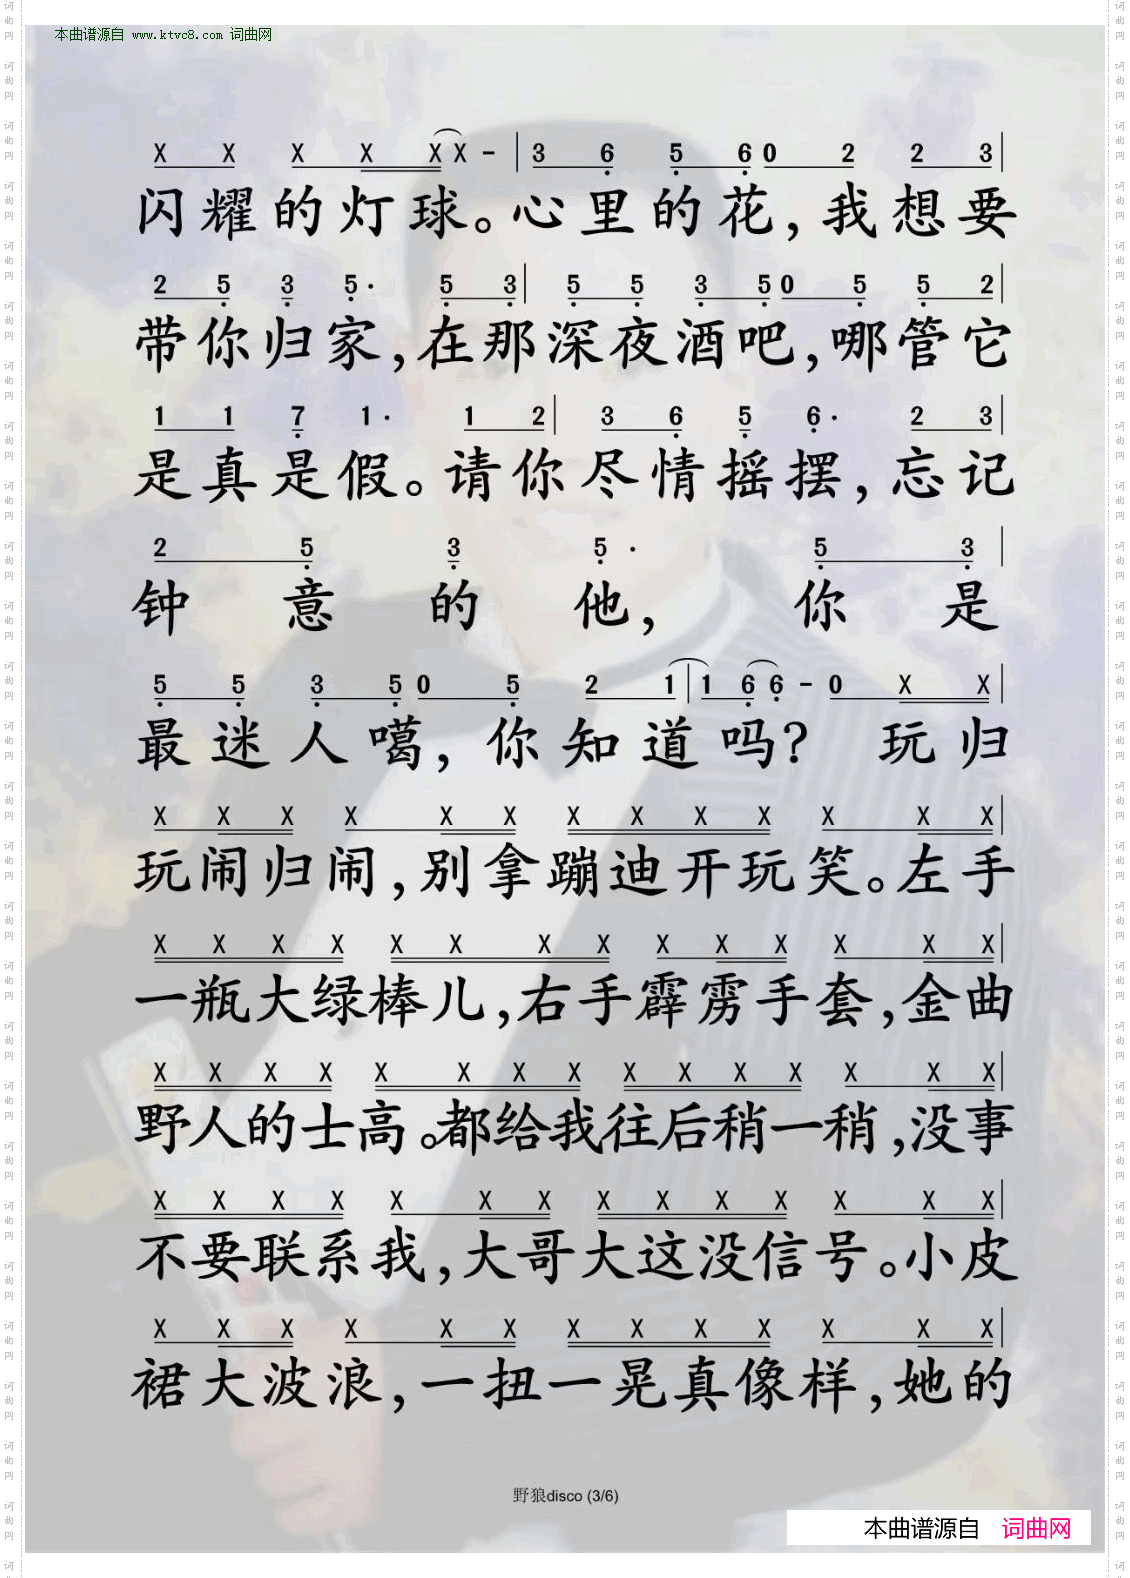 本曲谱源自 www.ktvc8.com 词曲网
X X X X X X - | 3 6 5 6 0 2 2 3 |
闪耀的灯球。心里的花，我想要
2 5 3 5 · 5 3 | 5 5 3 5 0 5 5 2 |
带你归家，在那深夜酒吧，哪管它
1 1 7 1 · 1 2 | 3 6 5 6 · 2 3 |
是真是假。请你尽情摇摆，忘记
2 5 3 5 · 5 3 |
钟意的他，你是
5 5 3 5 0 5 2 1 | 1 6 6 - 0 X X |
最迷人噶，你知道吗？ 玩归
X X X X X X X X X X X X X |
玩闹归闹，别拿蹦迪开玩笑。左手
X X X X X X X X X X X X X X |
一瓶大绿棒儿，右手霹雳手套，金曲
X X X X X X X X X X X X X X X |
野人的士高。都给我往后稍一稍，没事
X X X X X X X X X X X X X X |
不要联系我，大哥大这没信号。小皮
X X X X X X X X X X X X X |
裙大波浪，一扭一晃真像样，她的
野狼disco (3/6)
本曲谱源自 词曲网